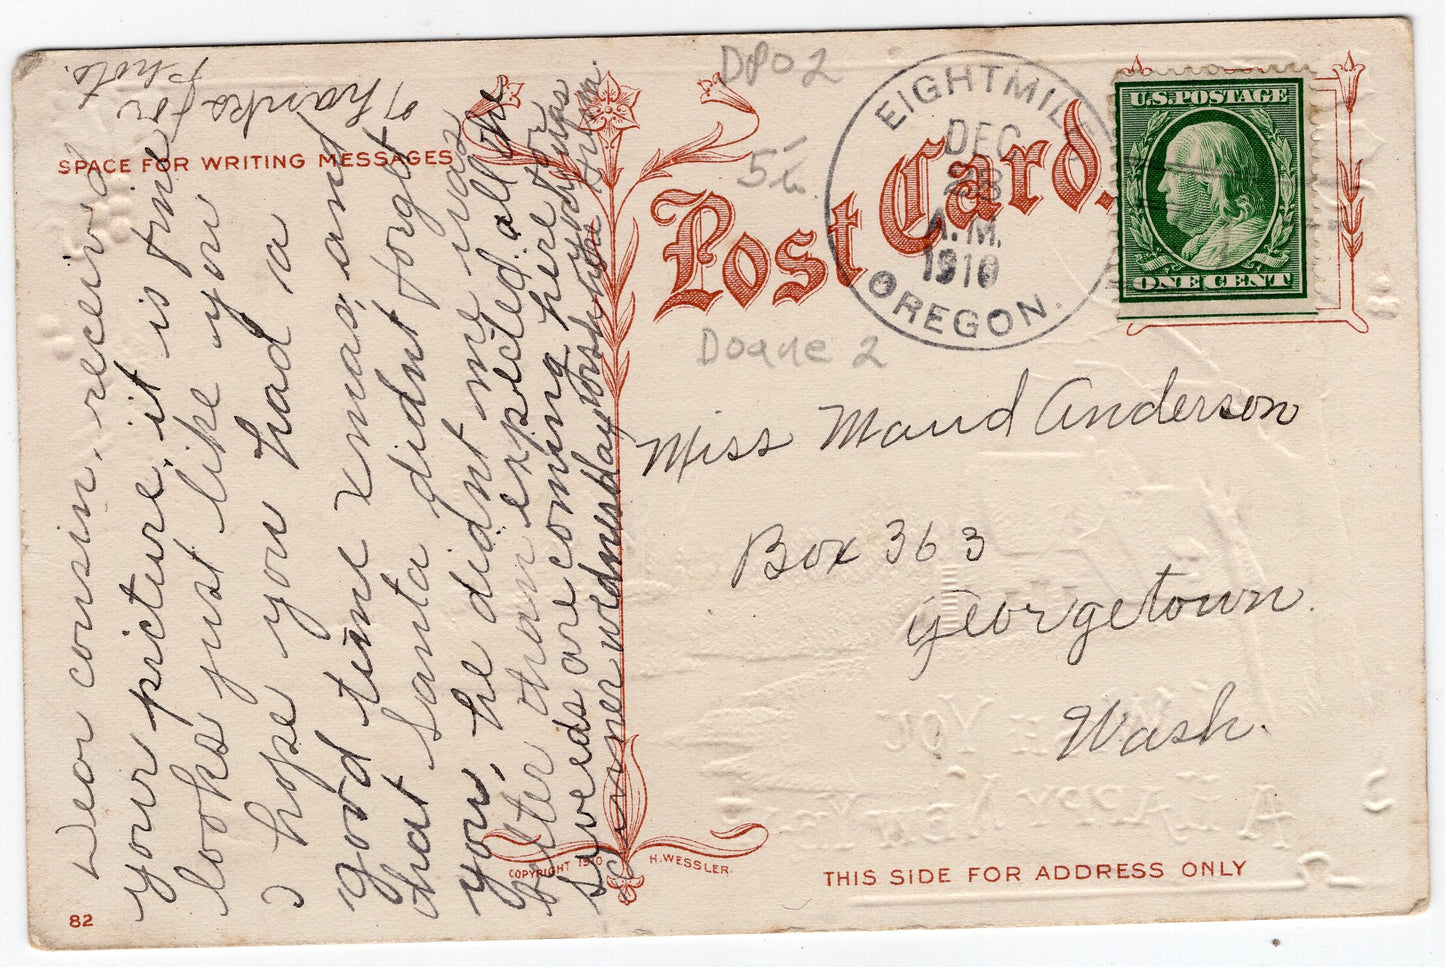 SPACE FOR WRITING MESSAGES
Thanks for
Photo.
Dear cousin, received
your picture, it is fine
looks just like you
I hope you had a
good time xmas, and
that Santa didnt forget
you, he didnt me, was
better than expected. all the
Sweeds are coming here for
dinner wednesday
DPO 2
5
Doane 2
Post Card.
EIGHTMILE
DEC
28
A.M.
1910
OREGON.
U.S. POSTAGE
ONE CENT
Miss Maud Anderson
Box 363
Georgetown
Wash.
I WISH YOU
A HAPPY NEW YEAR
COPYRIGHT 1910 H. WESSLER.
THIS SIDE FOR ADDRESS ONLY
82